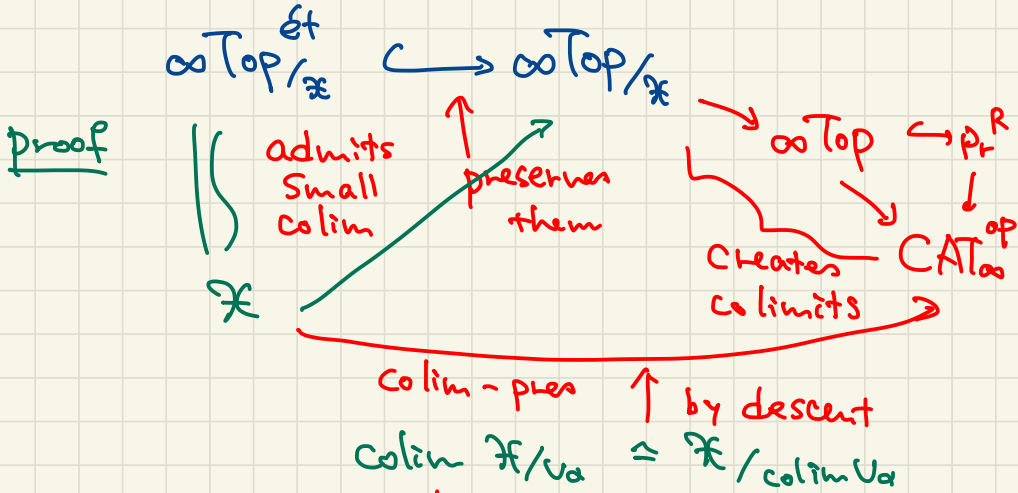 ∞Top^ét/𝒳 ↪ ∞Top/𝒳
proof
admits
small
colim
preserves
them
∞Top ↪ Pr^R
CAT∞^op
creates
colimits
𝒳
colim-pres
by descent
colim 𝒳/Uα ≃ 𝒳/colim Uα